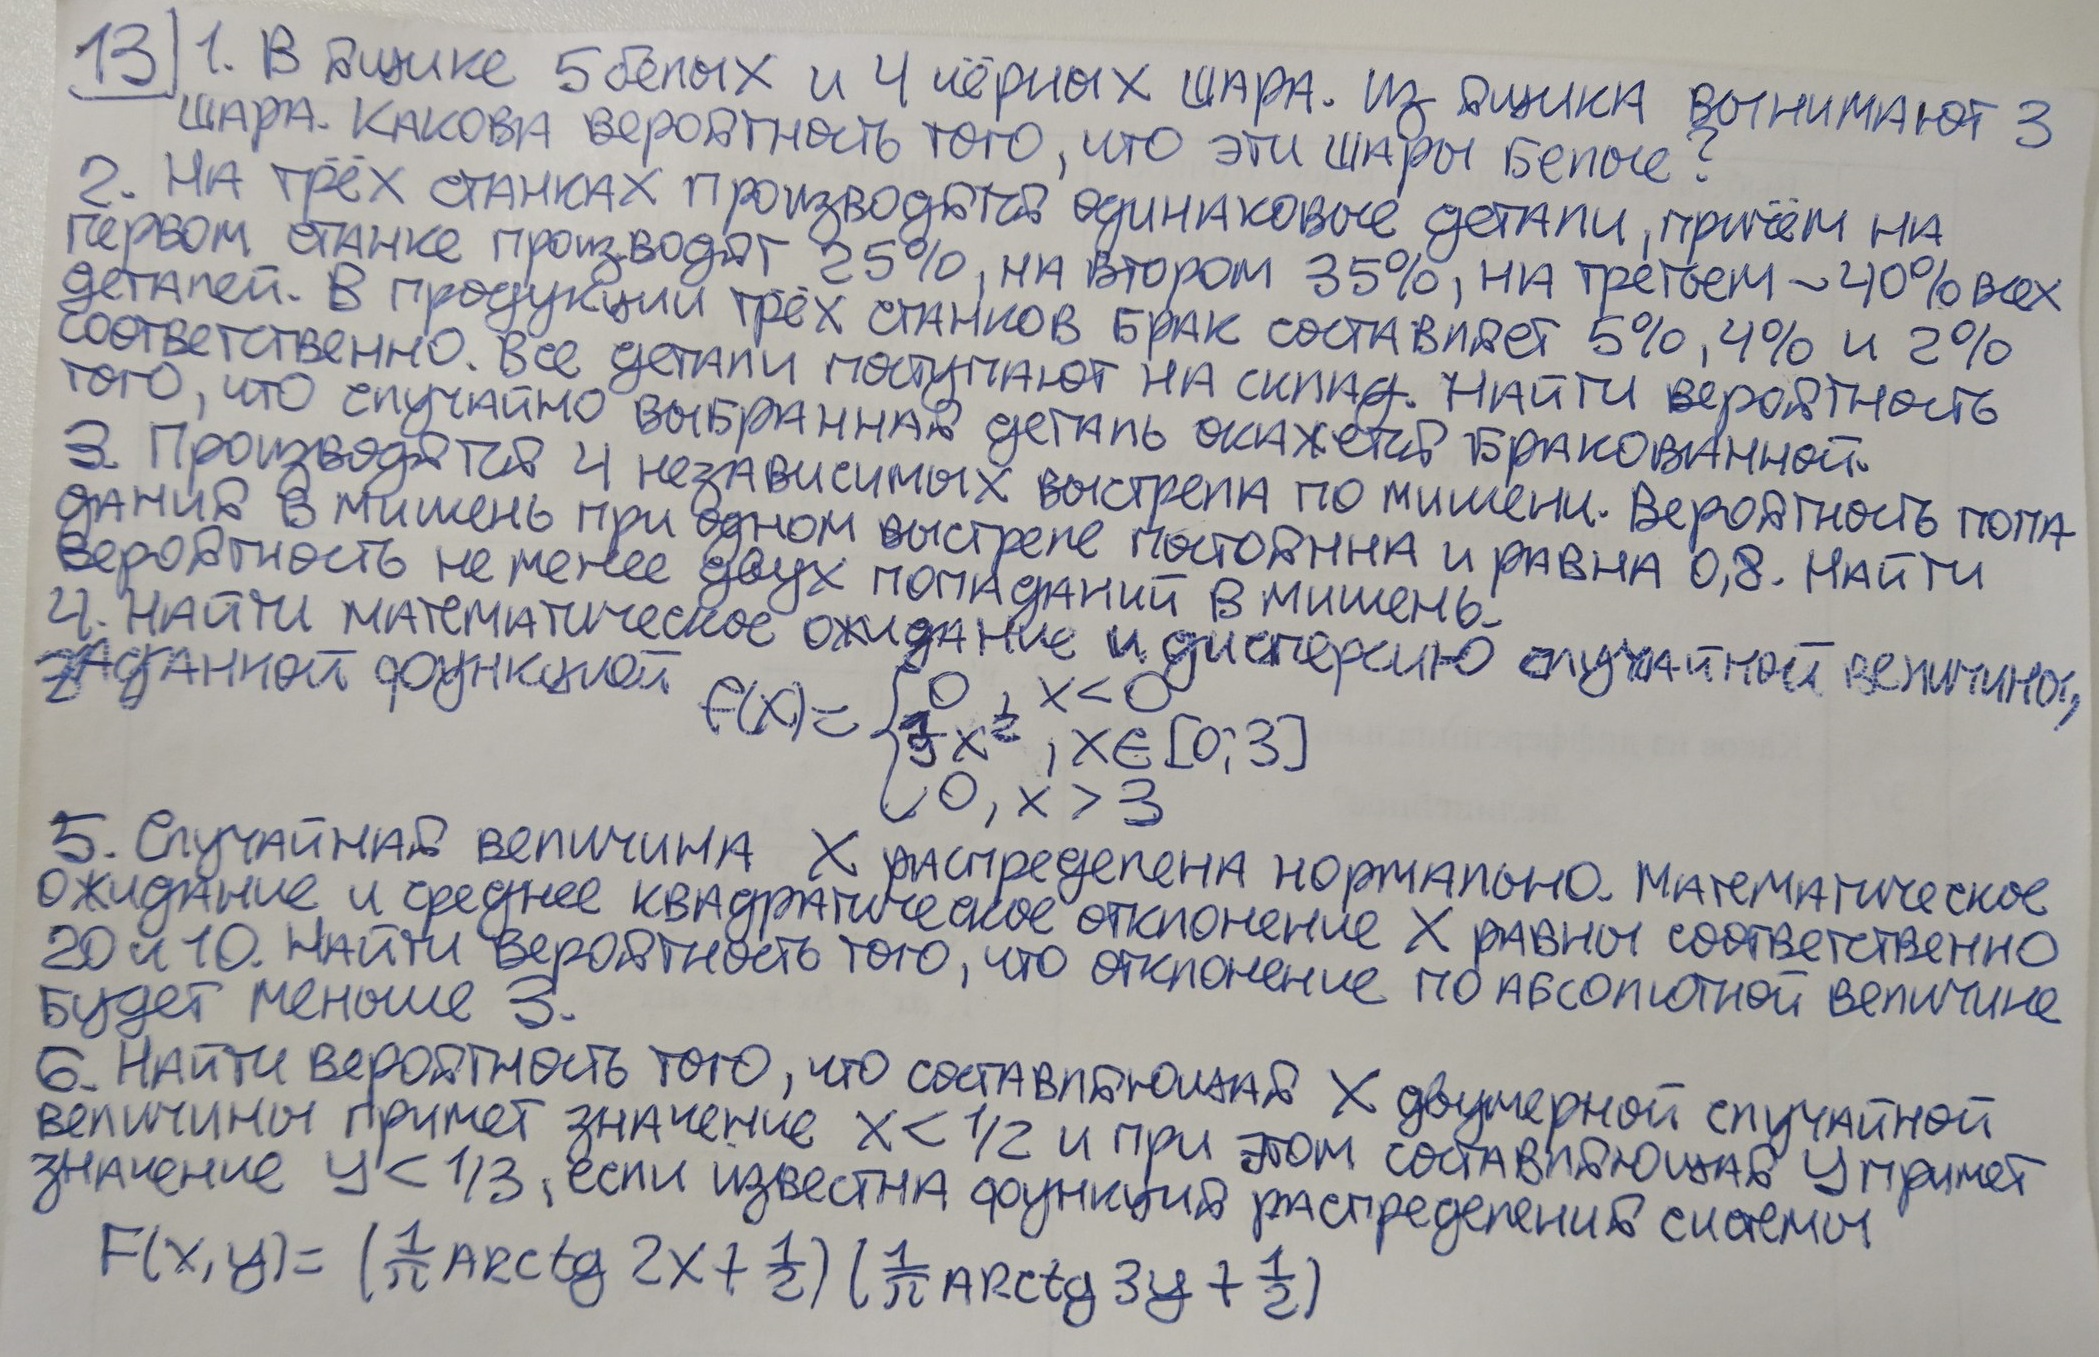 13 1. В ящике 5 белых и 4 чёрных шара. Из ящика вынимают 3
шара. Какова вероятность того, что эти шары белые?
2. На трёх станках производятся одинаковые детали, причём на
первом станке производят 25%, на втором 35%, на третьем ~ 40% всех
деталей. В продукции трёх станков брак составляет 5%, 4% и 2%
соответственно. Все детали поступают на склад. Найти вероятность
того, что случайно выбранная деталь окажется бракованной.
3. Производятся 4 независимых выстрела по мишени. Вероятность попа
дания в мишень при одном выстреле постоянна и равна 0,8. Найти
вероятность не менее двух попаданий в мишень.
4. Найти математическое ожидание и дисперсию случайной величины,
заданной функцией f(x) = { 0, x < 0
1/9 x², x ∈ [0; 3]
0, x > 3
5. Случайная величина X распределена нормально. Математическое
ожидание и среднее квадратическое отклонение X равны соответственно
20 и 10. Найти вероятность того, что отклонение по абсолютной величине
будет меньше 3.
6. Найти вероятность того, что составляющая X двумерной случайной
величины примет значение x < 1/2 и при этом составляющая y примет
значение y < 1/3, если известна функция распределения системы
F(x,y) = (1/π arctg 2x + 1/2) (1/π arctg 3y + 1/2)